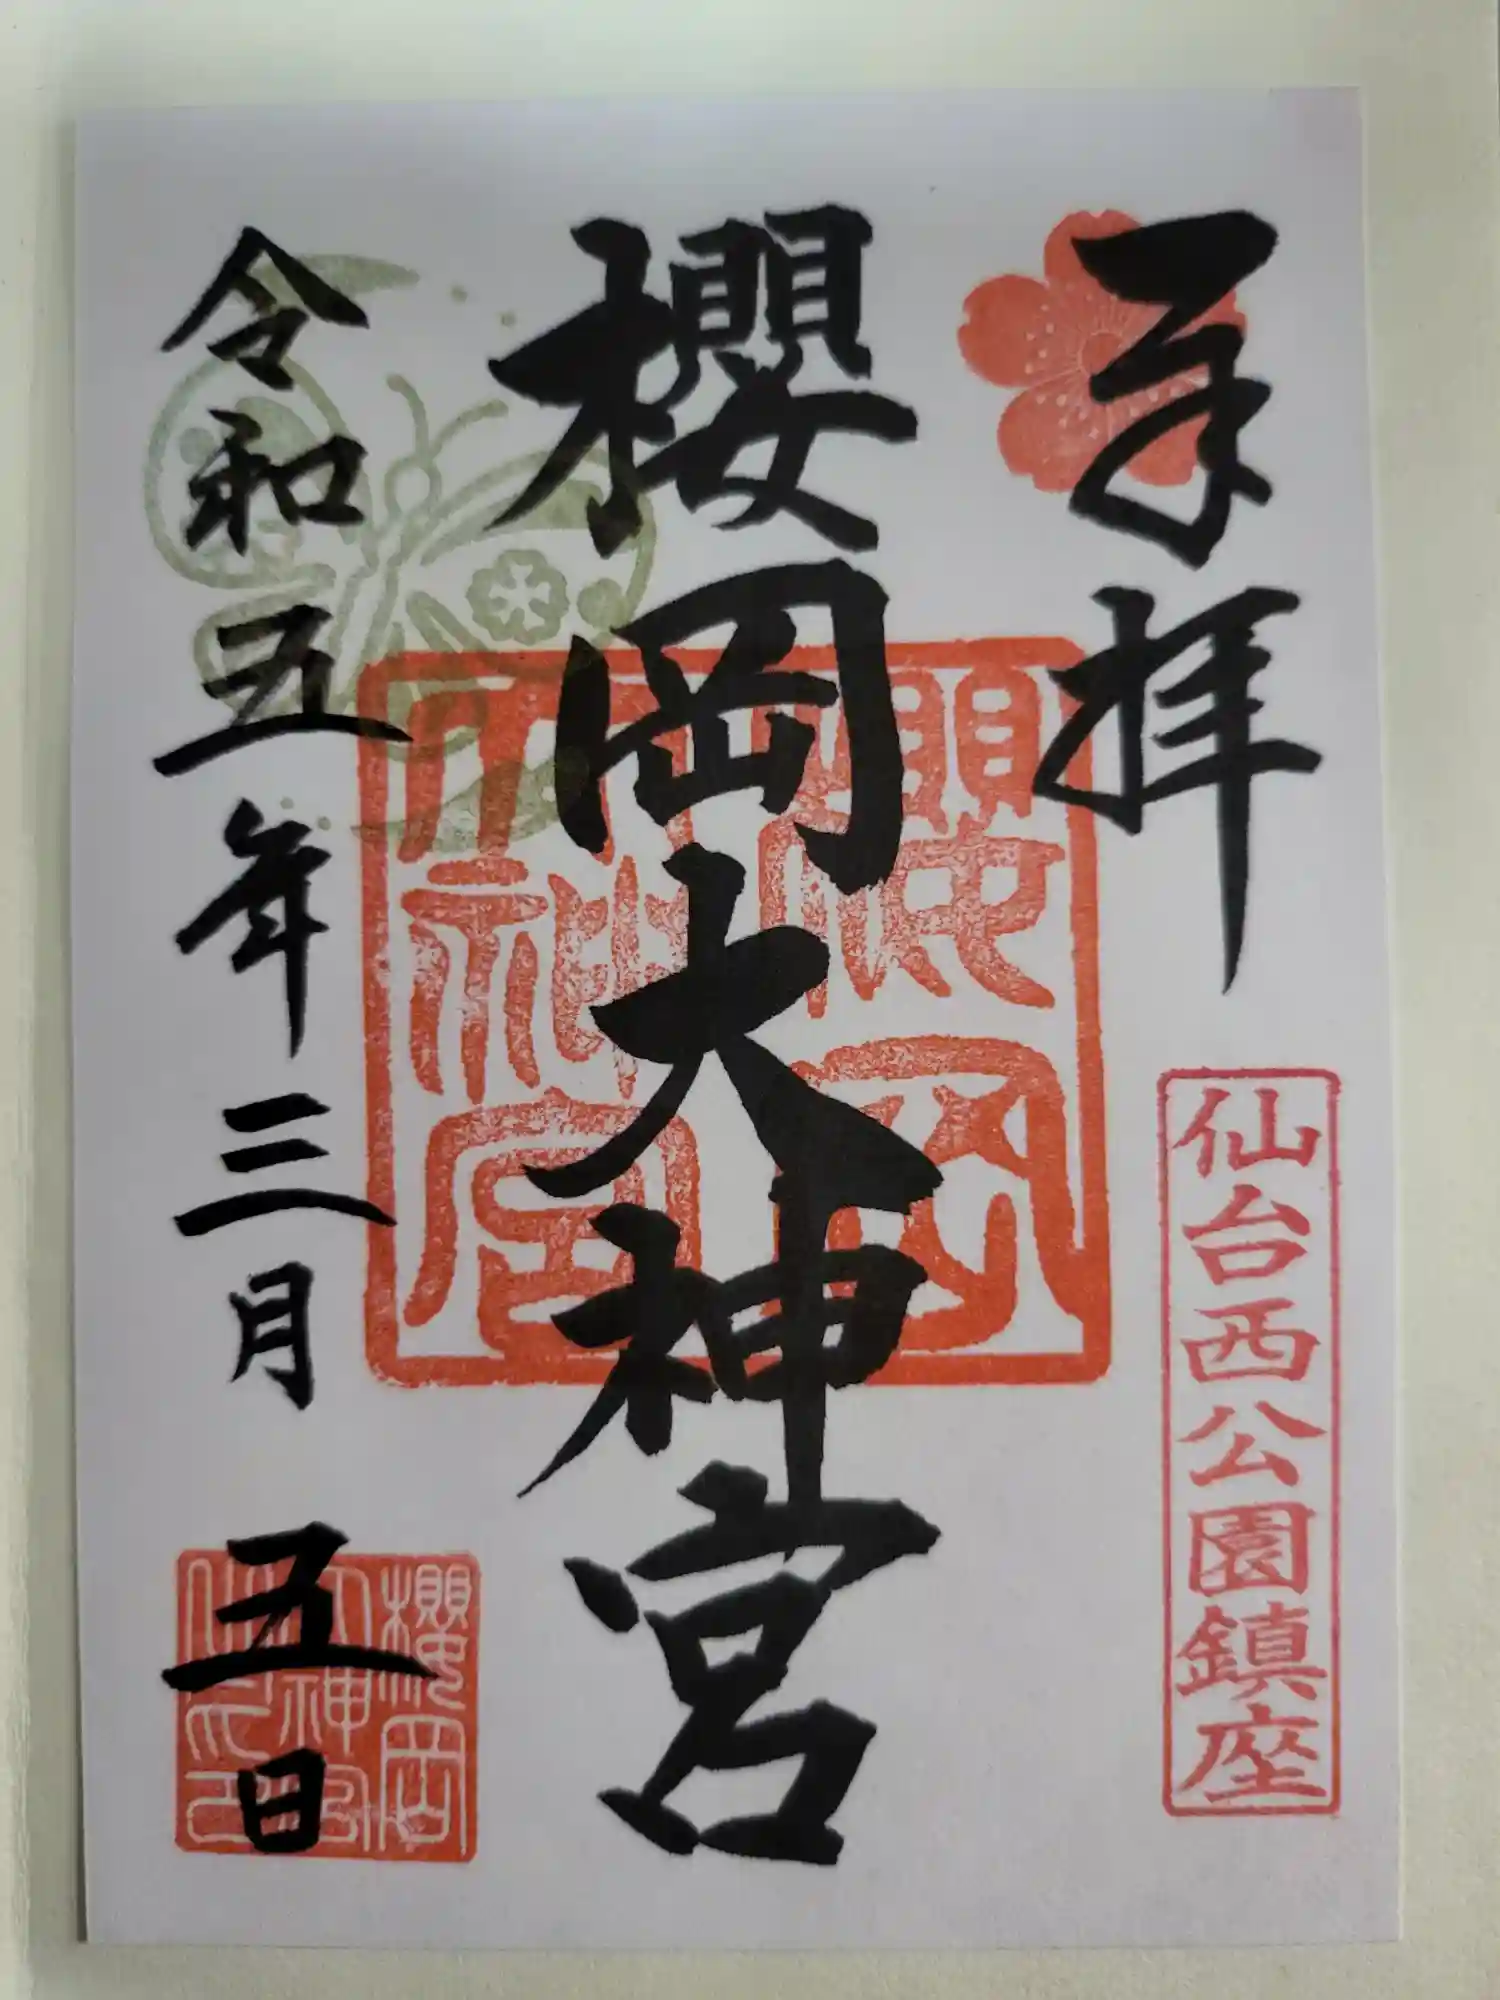 奉拝
仙台西公園鎮座
櫻岡大神宮
櫻岡
大神宮
令和五年三月五日
櫻岡
大神宮